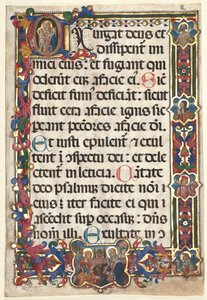 Exurgat deus et
dissipent in
imici eius: et fugiant qui
oderūt eū a facie ei. Sic
deficit fum deficiāt: sicut
fluit cera a facie ignis sic pe
reant pctores a facie dei.
Et iusti epulent et exul
tent i ospectu dei: et dele
ctent in leticia. Cātate
deo psalmuz dicite noi
eius: iter facite ei qui
ascedit sup occasuz: dns
nom illi. Exultate in